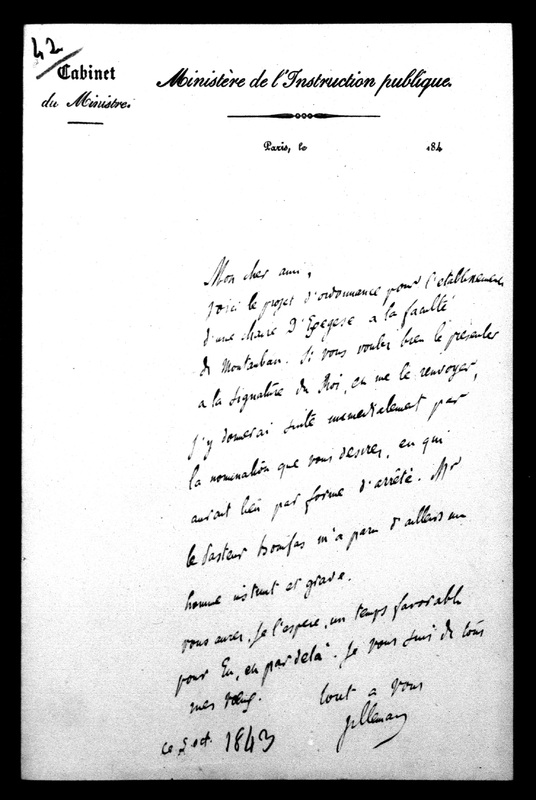 42
Cabinet
du Ministre.
Ministère de l'Instruction publique.
Paris, le 184
Mon cher ami,
Voici le projet d'ordonnance pour l'etablissement
d'une chaire D'Exegese a la faculté
de Montauban. Si vous voulez bien le presenter
a la signature du Roi, en me le renvoyer,
j'y donnerai suite immediatement par
la nomination que vous desirez, en qui
aurait lieu par forme d'arrêté. Mr
le Pasteur Bonifas m'a paru d'ailleurs un
homme instruit et grave.
vous aurez, je l'espere, un temps favorable
pour Eu, en par delà. Je vous suis de tous
mes vœux. tout a vous
Villemain
ce 5 oct. 1843